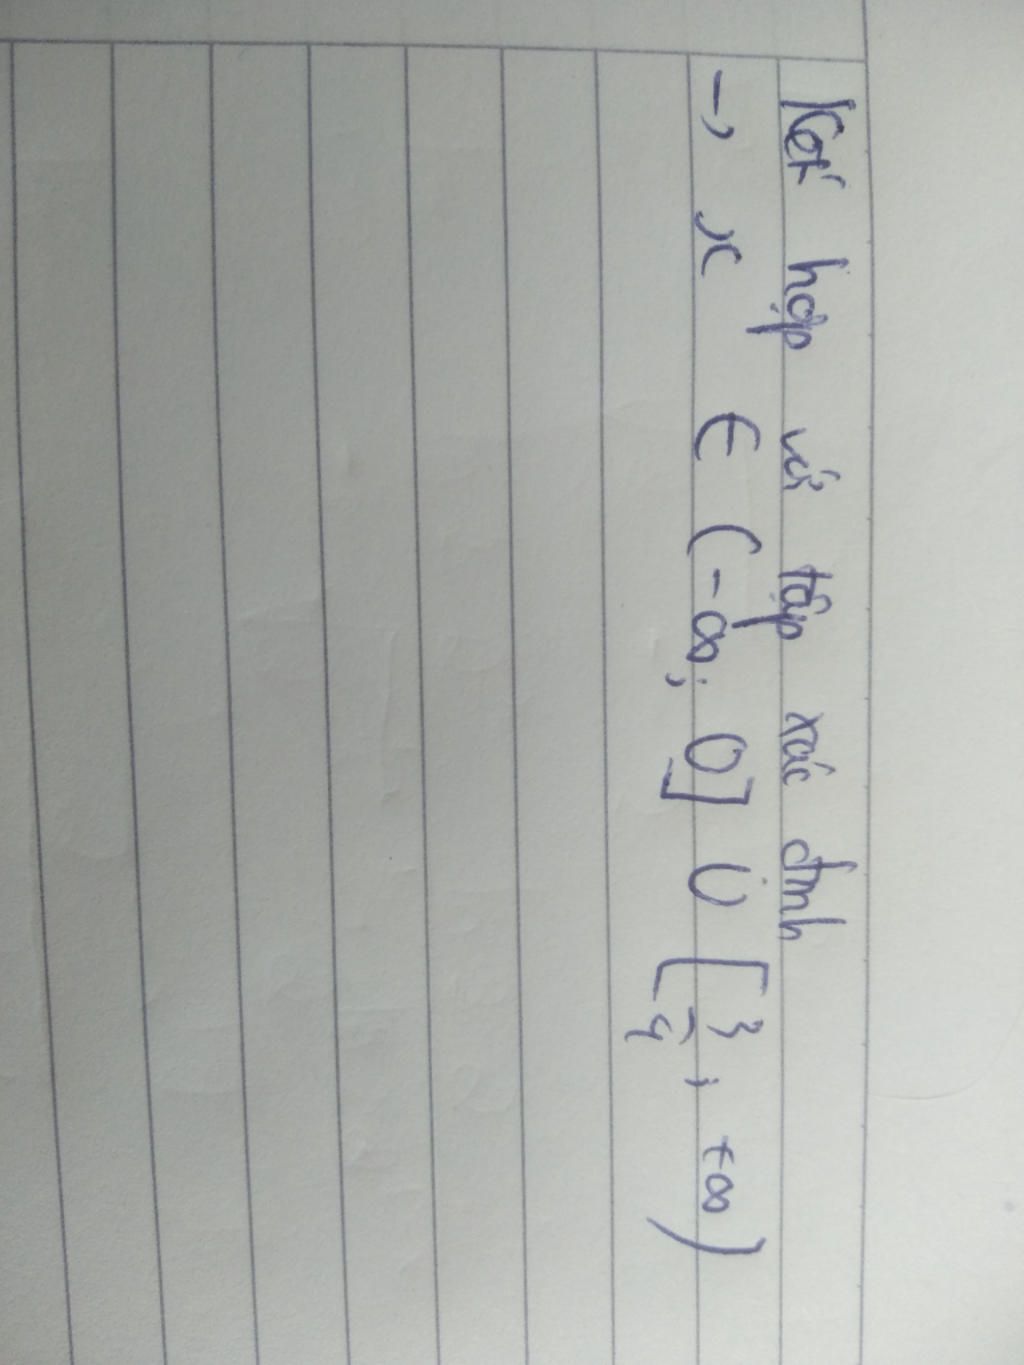 Kết hợp với tập xác định
→ x ∈ (-∞; 0] ∪ [3/4, +∞)